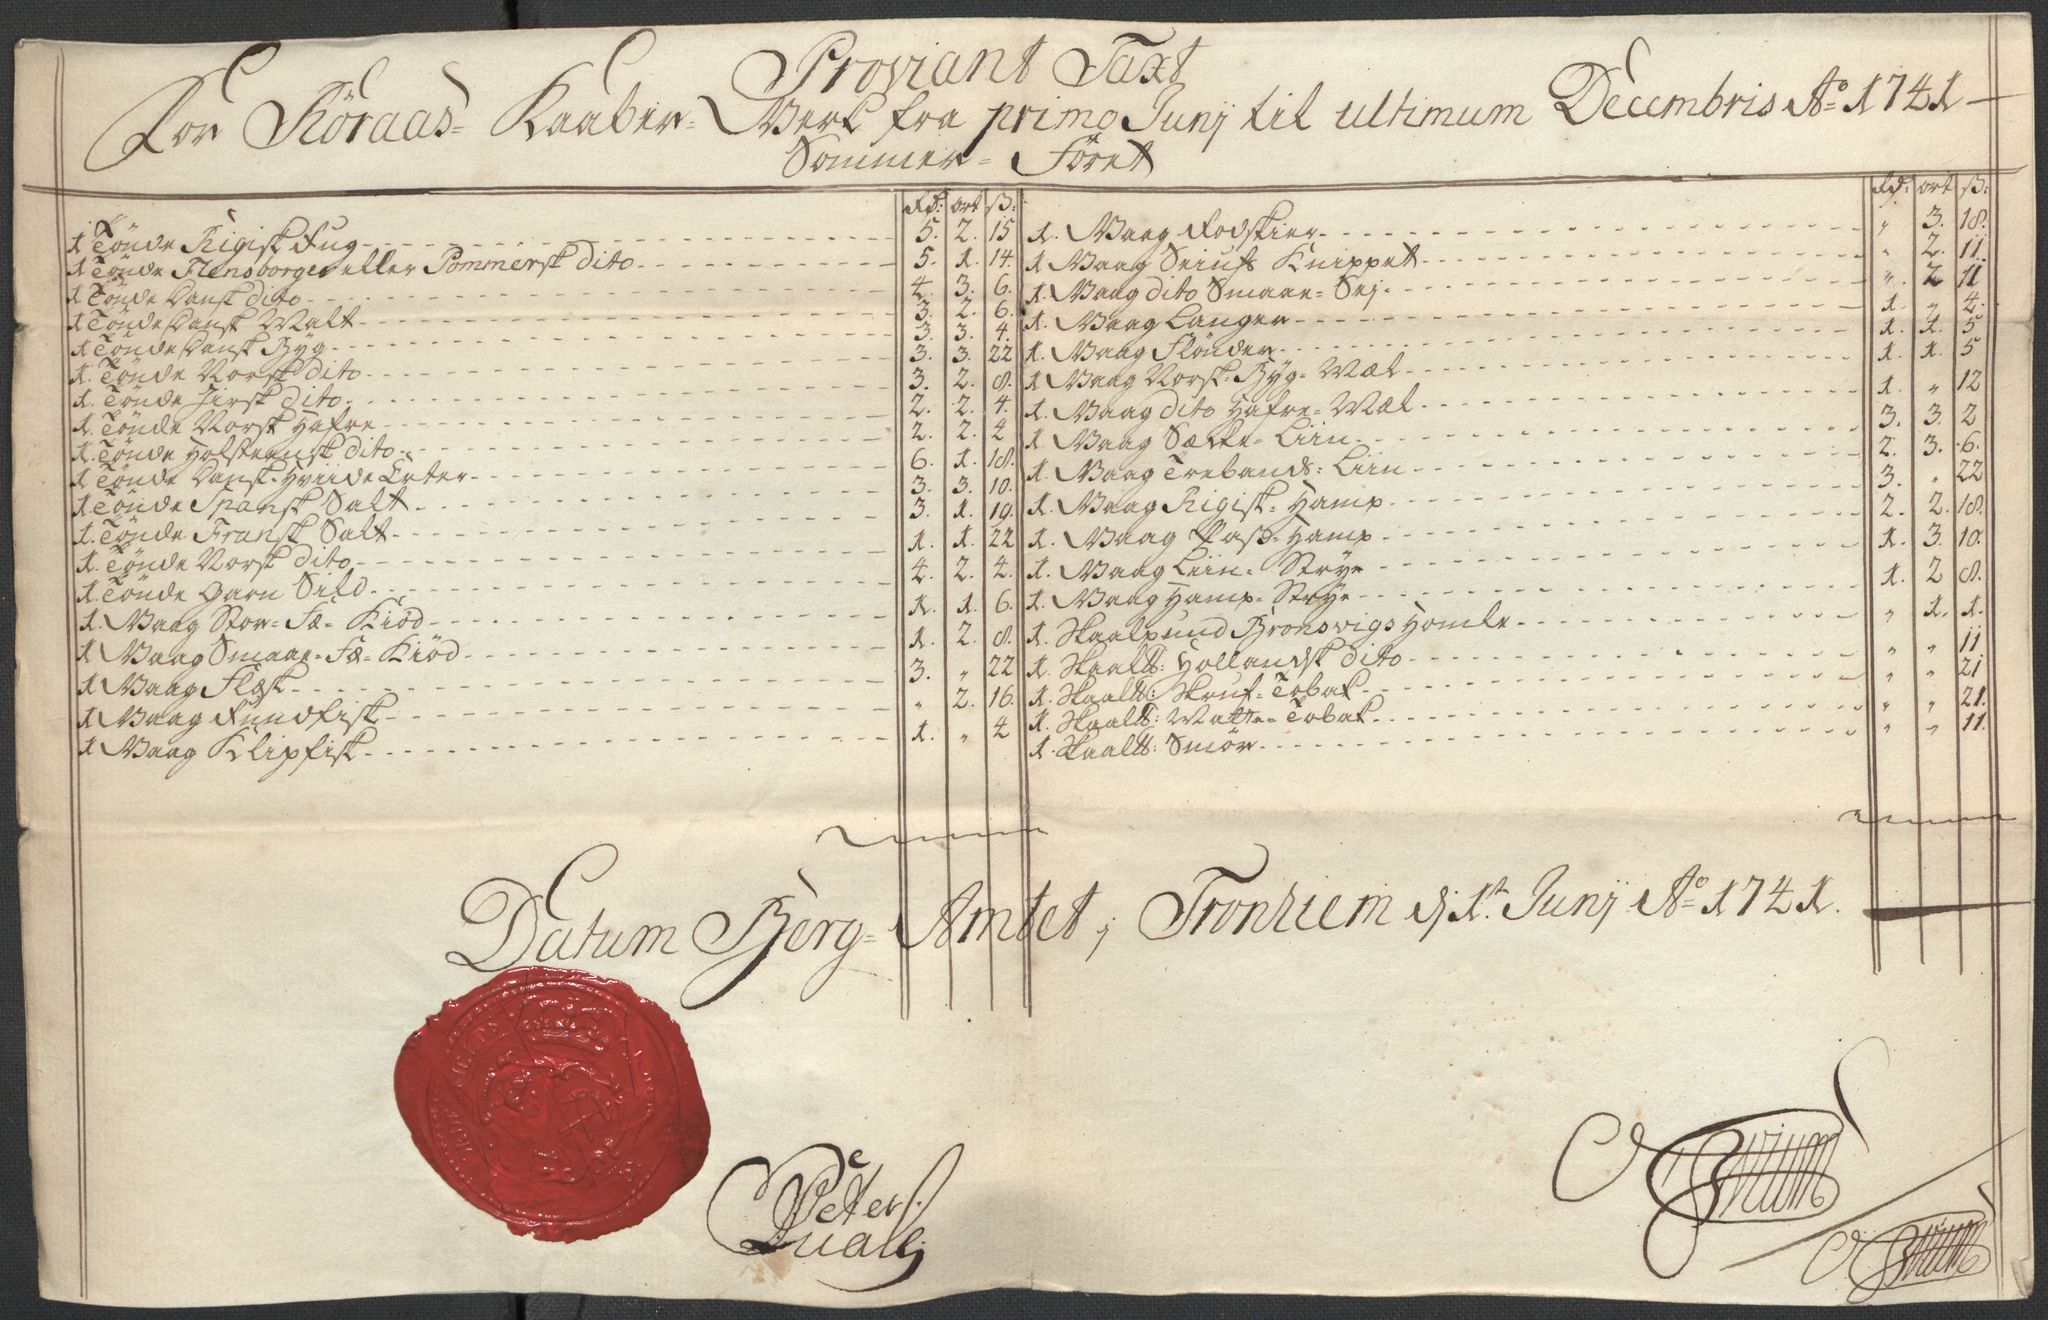 Proviant Taxt
For Röraas= Kaaber= Werk fra primo Junij til ultimum Decembris Ao 1741
Sommer= Föret
Rd: ort ß:
1 Tönde Rigisk Rug 5. 2. 15
1 Tönde Flensborger eller Pommersk dito 5. 1. 14.
1 Tönde Dansk dito 4. 3. 6.
1 Tönde Dansk Malt 3. 2. 6.
1 Tönde Dansk Byg 3. 3. 4.
1. Tönde Norsk dito 3. 3. 22
1. Tönde Jirsk dito 3. 2. 8.
1. Tönde Norsk Hafre 2. 2. 4.
1. Tönde Holsteensk dito 2. 2. 4
1 Tönde Dansk Hviide Erter 6. 1. 18.
1 Tönde Spansk Salt 3. 3. 10.
1. Tönde Fransk Salt 3. 1. 19.
1. Tönde Norsk dito 1. 1. 22
1. Tönde Garn Sild 4. 2. 4.
1. Vaag Stor= Fæ= Kiöd 1. 1. 6.
1 Vaag Smaae= Fæ= Kiöd 1. 2. 8.
1 Vaag Flæsk 3. " 22
1 Vaag Rundfisk " 2. 16.
1 Vaag Klipfisk 1. " 4
Rd: ort ß:
1. Vaag Rodskier " 3. 18.
1 Vaag Seiufs Knippet " 2. 11.
1. Vaag dito Smaae= Sej " 2 11
1. Vaag Langer 1. " 4.
1. Vaag Flönder 1. 1. 5
1 Vaag Norsk= Byg= Mæl 1. 1. 5
1. Vaag dito Hafre= Mæl 1. " 12
1 Vaag Sække= Liin 3. 3. 2
1 Vaag Trebands: Liin 2. 3. 6.
1. Vaag Rigisk= Hamp 3. " 22
1. Vaag Pas= Hamp 2. 2. 18.
1. Vaag Liin= Strye 1. 3. 10.
1. Vaag Hamp= Strye 1. 2 8.
1. Skaalpund Bronsvigs Homle " 1. 1.
1 Skaal℔: Hollandsk dito " " 11
1. Skaal℔: Skruf= Tobak " " 21
1. Skaal℔: Matte= Tobak " " 21.
1. Skaal℔: Smör " " 11.
Datum Berg= Amtet, Tronhiem d: 1t. Junij Ao 1741.
Peter